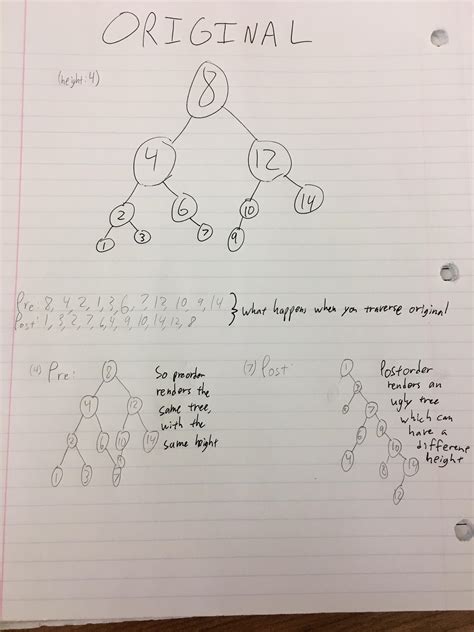 ORIGINAL
(height: 4)
8
4 12
2 6 10 14
1 3 7 9
Pre: 8, 4, 2, 1, 3, 6, 7, 12, 10, 9, 14 } What happens when you traverse original
Post: 1, 3, 2, 7, 6, 4, 9, 10, 14, 12, 8
(4) Pre:
8
4 12
2 6 10 14
1 3 7
So preorder
renders the
same tree,
with the
same height
(7) Post:
1
3
2 7
6 9
4 10
8 14
12
Postorder
renders an
ugly tree
which can
have a
different
height